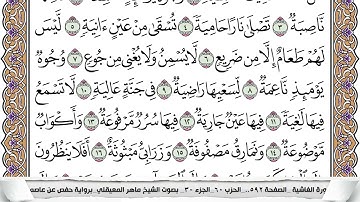 نَّاصِبَةٌ ٣ تَصْلَىٰ نَارًا حَامِيَةً ٤ تُسْقَىٰ مِنْ عَيْنٍ ءَانِيَةٍ ٥ لَّيْسَ
لَهُمْ طَعَامٌ إِلَّا مِن ضَرِيعٍ ٦ لَّا يُسْمِنُ وَلَا يُغْنِى مِن جُوعٍ ٧ وُجُوهٌ
يَوْمَئِذٍ نَّاعِمَةٌ ٨ لِّسَعْيِهَا رَاضِيَةٌ ٩ فِى جَنَّةٍ عَالِيَةٍ ١٠ لَّا تَسْمَعُ
فِيهَا لَٰغِيَةً ١١ فِيهَا عَيْنٌ جَارِيَةٌ ١٢ فِيهَا سُرُرٌ مَّرْفُوعَةٌ ١٣ وَأَكْوَابٌ
مَّوْضُوعَةٌ ١٤ وَنَمَارِقُ مَصْفُوفَةٌ ١٥ وَزَرَابِىُّ مَبْثُوثَةٌ ١٦ أَفَلَا يَنظُرُونَ
ورة الغاشية _الصفحة ٥٩٢_ الحزب ٦٠_الجزء ٣٠. بصوت الشيخ ماهر المعيقلي برواية حفص عن عاصم